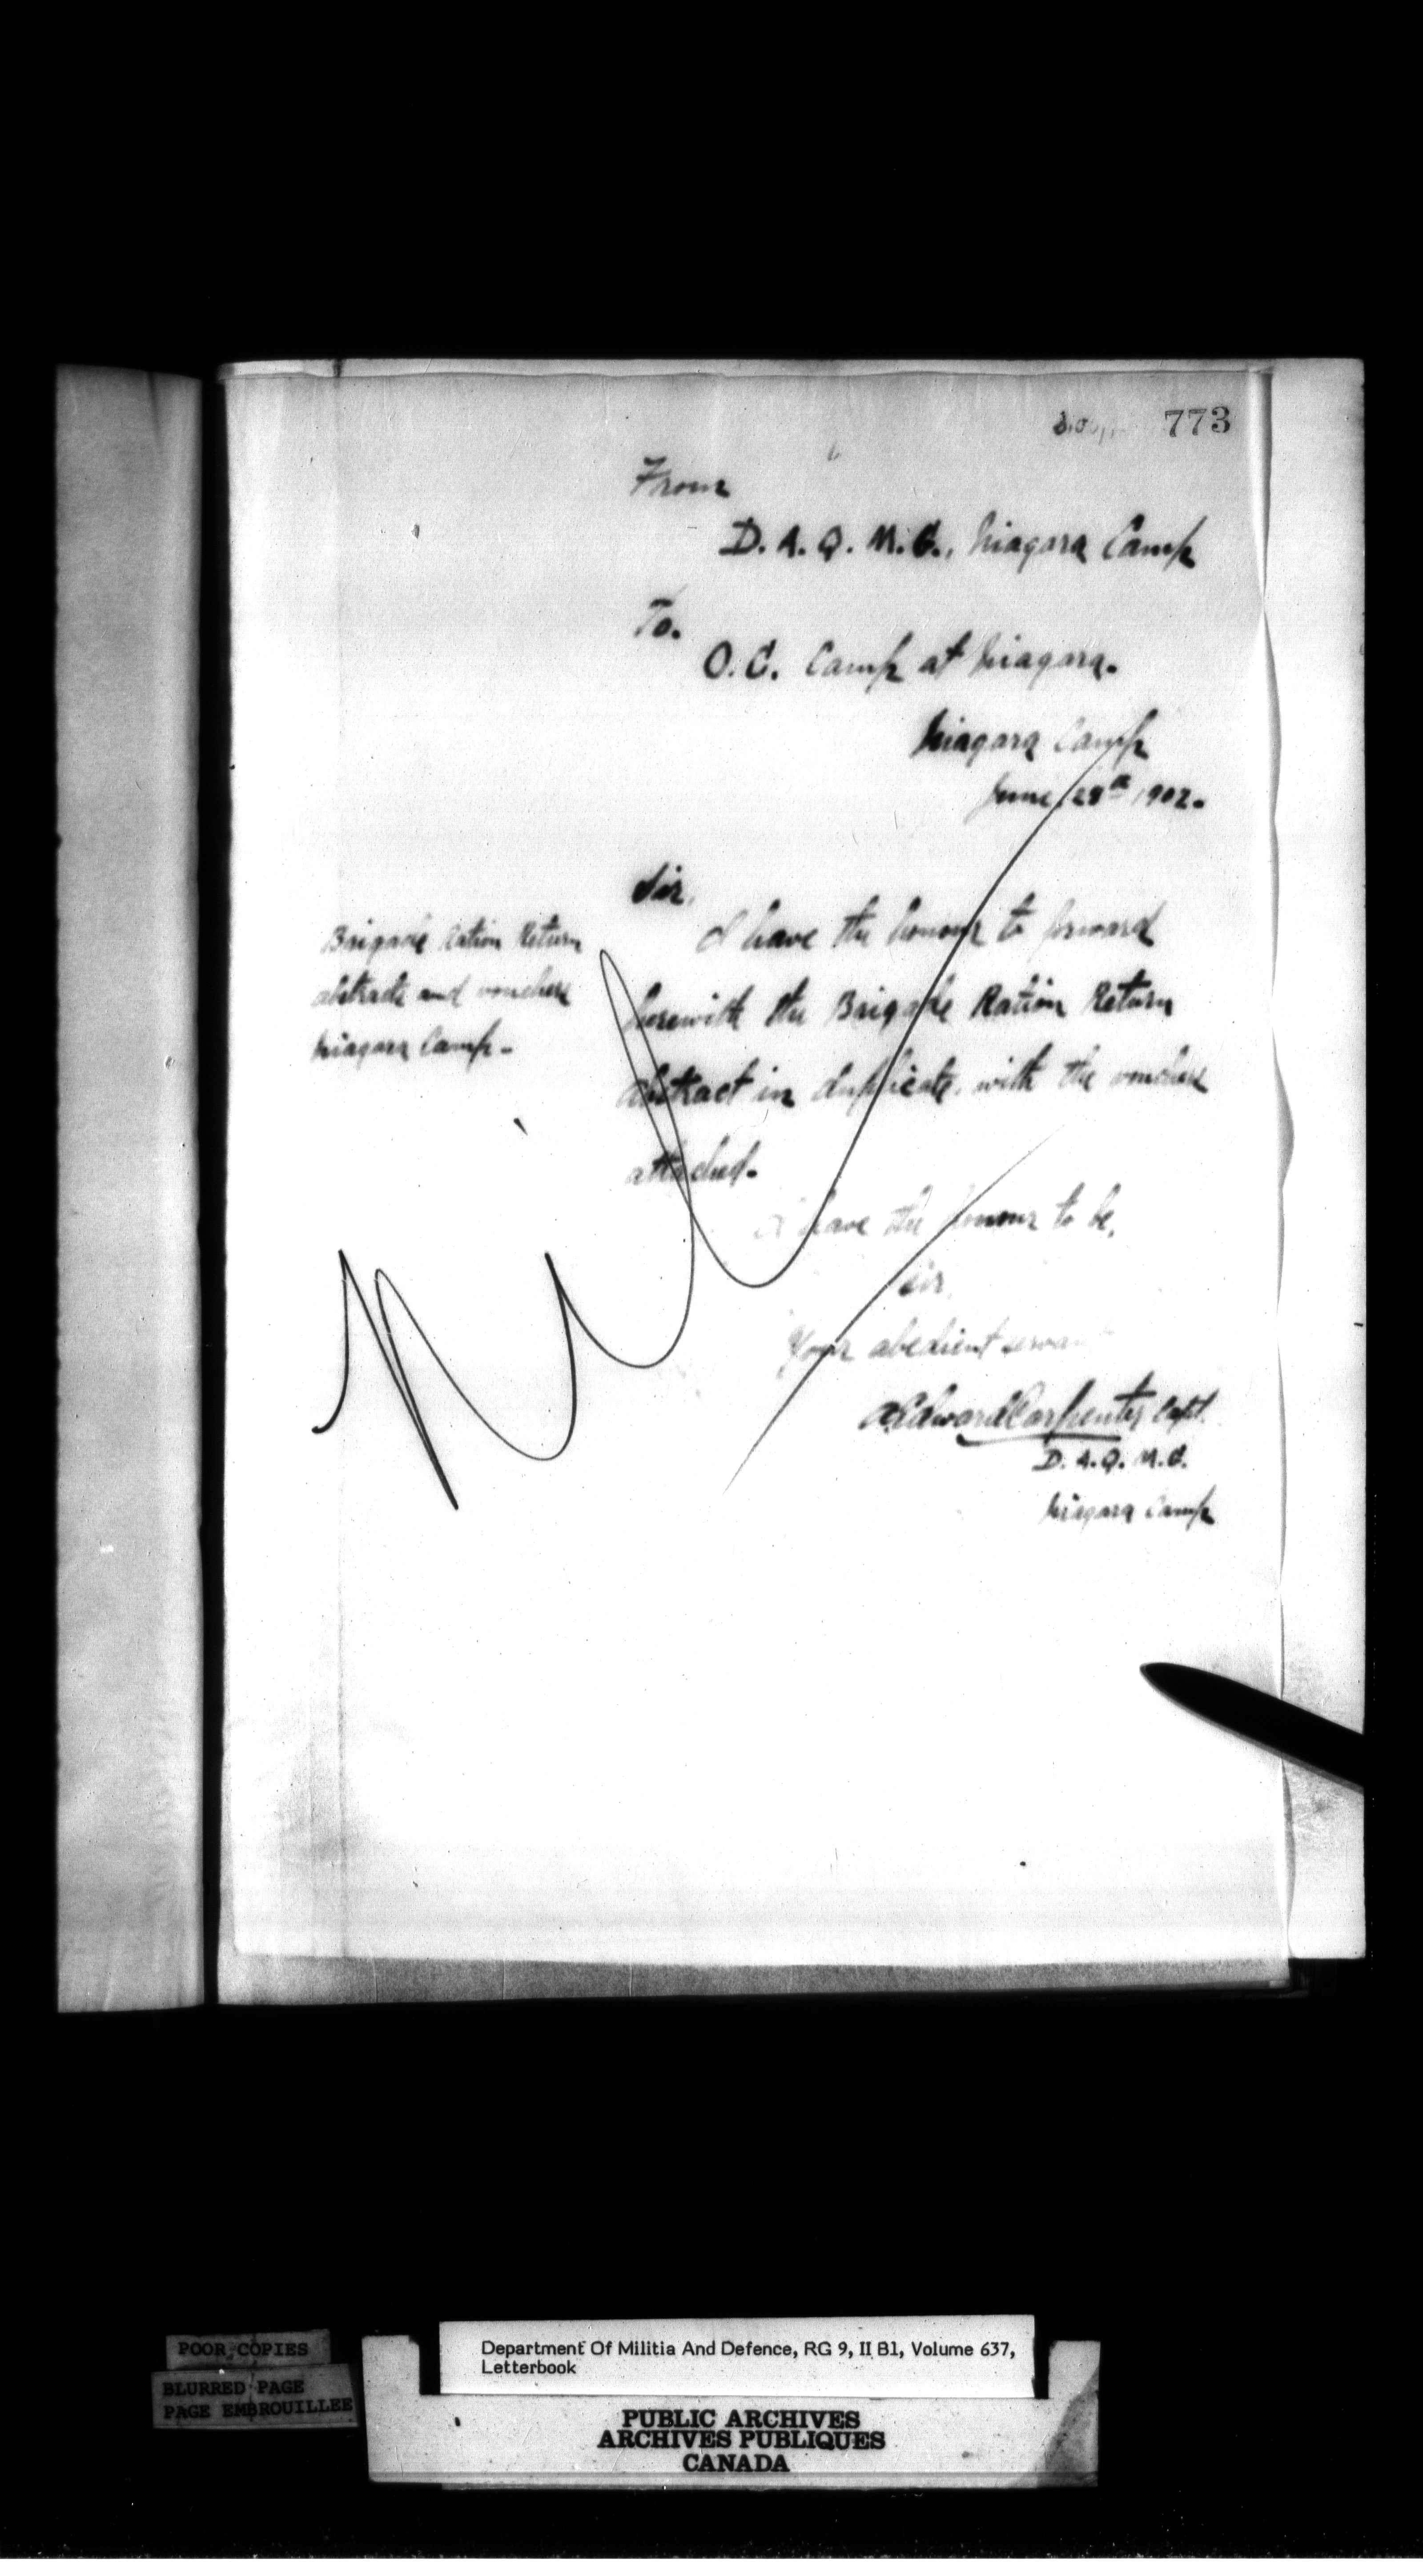 773
From
D. A. Q. M. G., Niagara Camp
To.
O. C. Camp at Niagara.
Niagara Camp
June 28th 1902.
Sir,
Brigade Ration Return
abstracts and vouchers
Niagara Camp.
I have the honour to forward
herewith the Brigade Ration Return
abstract in duplicate, with the vouchers
attached.
I have the honour to be,
Sir,
Your obedient servant
A. Edward Carpenter Capt.
D. A. Q. M. G.
Niagara Camp
Nil
POOR COPIES
BLURRED PAGE
PAGE EMBROUILLEE
Department Of Militia And Defence, RG 9, II B1, Volume 637,
Letterbook
PUBLIC ARCHIVES
ARCHIVES PUBLIQUES
CANADA